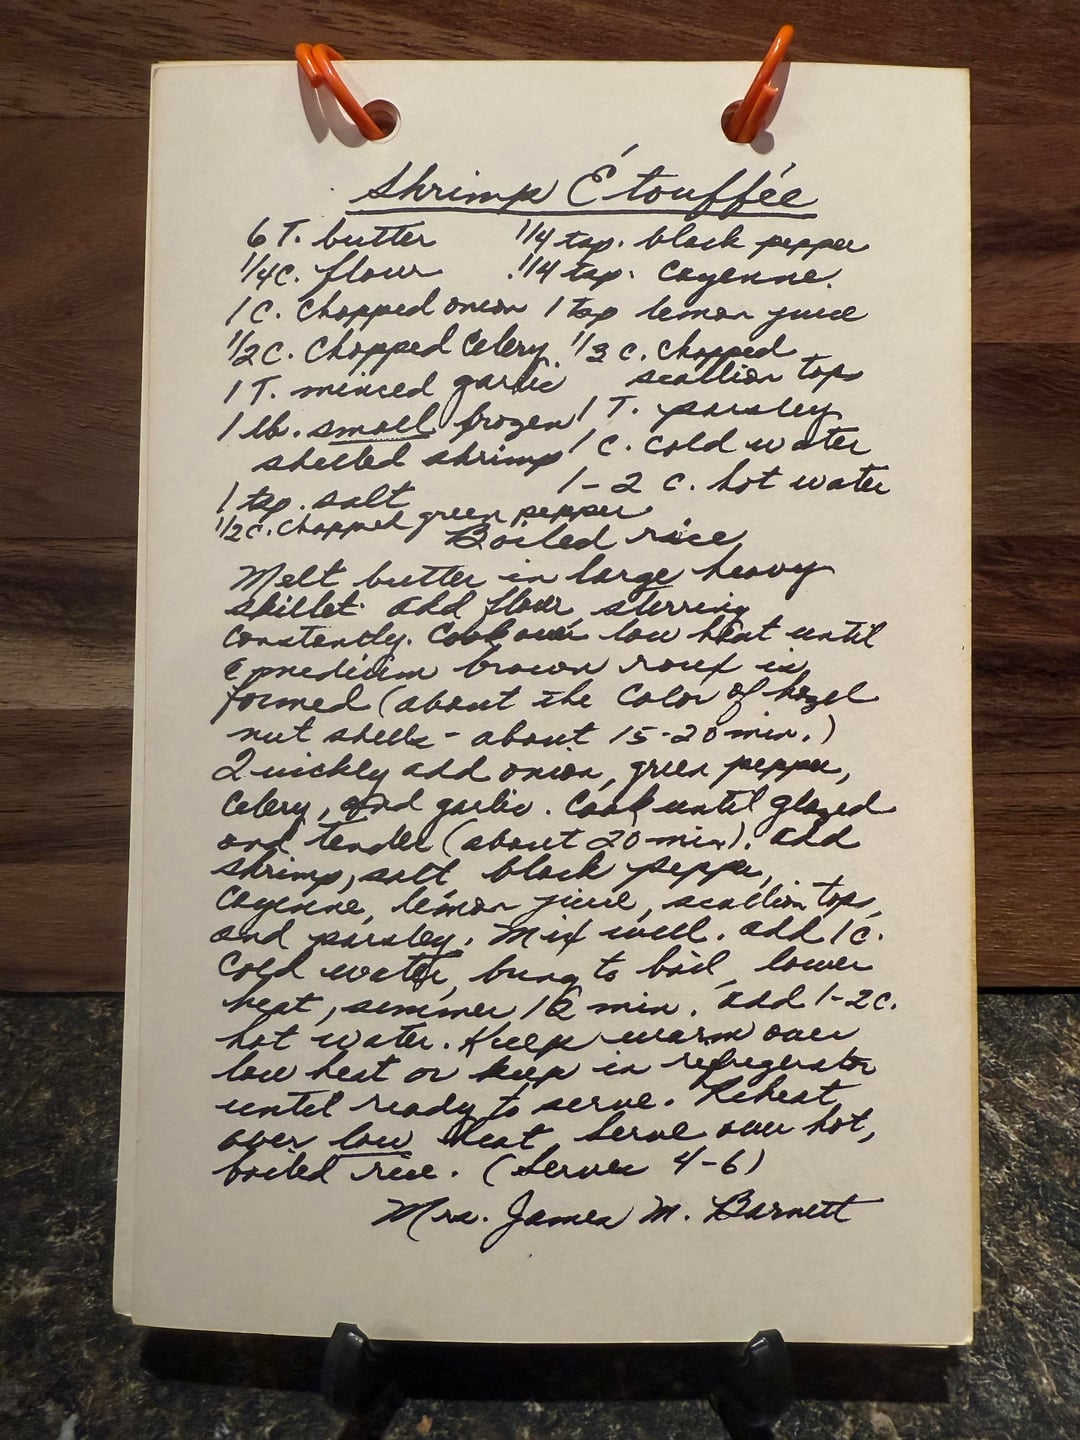 Shrimp Étouffée
6 T. butter 1/4 tsp. black pepper
1/4 C. flour 1/4 tsp. Cayenne.
1 C. Chopped onion 1 tsp lemon juice
1/2 C. Chopped Celery 1/3 C. Chopped
scallion tops
1 T. minced garlic
1 T. parsley
1 lb. small frozen
shelled shrimp 1 C. cold water
1-2 C. hot water
1 tsp. salt
1/2 C. chopped green pepper
Boiled rice
Melt butter in large heavy
skillet. add flour, stirring
constantly. Cook over low heat until
a medium brown roux is
formed (about the Color of hazel
nut shells - about 15-20 min.)
Quickly add onion, green pepper,
Celery, and garlic. Cook until glazed
and tender (about 20 min). add
shrimp, salt black pepper,
Cayenne, lemon juice, scallion tops,
and parsley. Mix well. add 1 C.
Cold water, bring to boil, lower
heat, simmer 12 min. add 1-2 C.
hot water. Keep warm over
low heat or keep in refrigerator
until ready to serve. Reheat
over low heat, Serve over hot,
boiled rice. (Serves 4-6)
Mrs. James M. Barnett